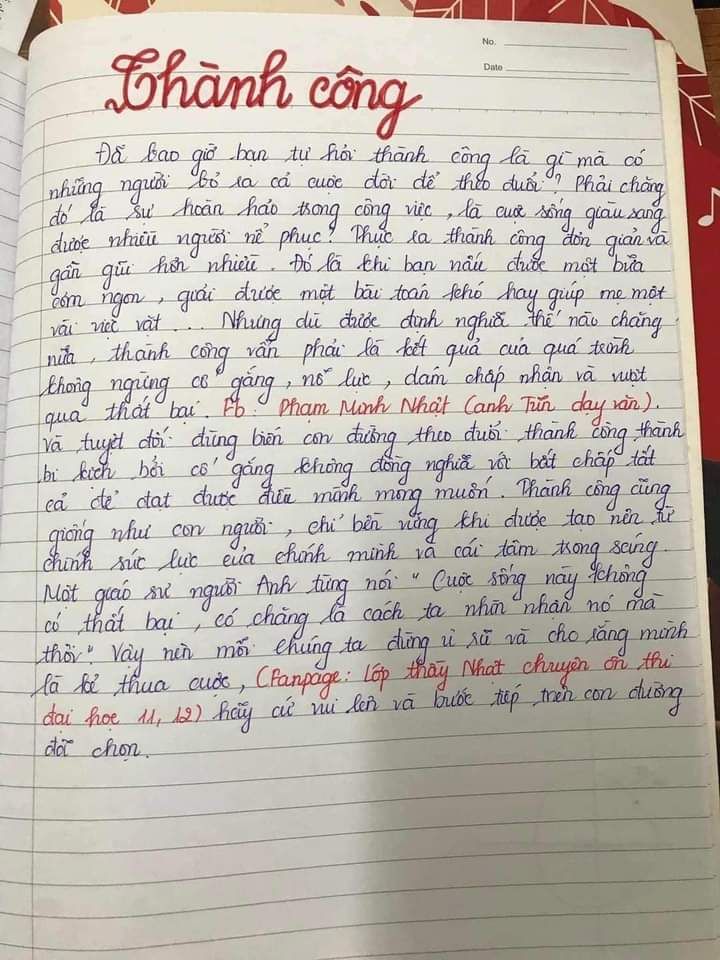 No.
Date
Thành công
Đã bao giờ bạn tự hỏi thành công là gì mà có
những người bỏ ra cả cuộc đời để theo đuổi? Phải chăng
đó là sự hoàn hảo trong công việc, là cuộc sống giàu sang
được nhiều người nể phục? Thực ra thành công đơn giản và
gần gũi hơn nhiều. Đó là khi bạn nấu được một bữa
cơm ngon, giải được một bài toán khó hay giúp mẹ một
vài việc vặt... Nhưng dù được định nghĩa thế nào chăng
nữa, thành công vẫn phải là kết quả của quá trình
không ngừng cố gắng, nỗ lực, dám chấp nhận và vượt
qua thất bại. Fb: Phạm Minh Nhật (anh Tũn dạy văn).
Và tuyệt đối đừng biến con đường theo đuổi thành công thành
bi kịch bởi cố gắng không đồng nghĩa với bất chấp tất
cả để đạt được điều mình mong muốn. Thành công cũng
giống như con người, chỉ bền vững khi được tạo nên từ
chính sức lực của chính mình và cái tâm trong sáng.
Một giáo sư người Anh từng nói "Cuộc sống này không
có thất bại, có chăng là cách ta nhìn nhận nó mà
thôi". Vậy nên mỗi chúng ta đừng ủ rũ và cho rằng mình
là kẻ thua cuộc, (Fanpage: Lớp thầy Nhật chuyên ôn thi
đại học 11, 12) hãy cứ vui lên và bước tiếp trên con đường
đã chọn.